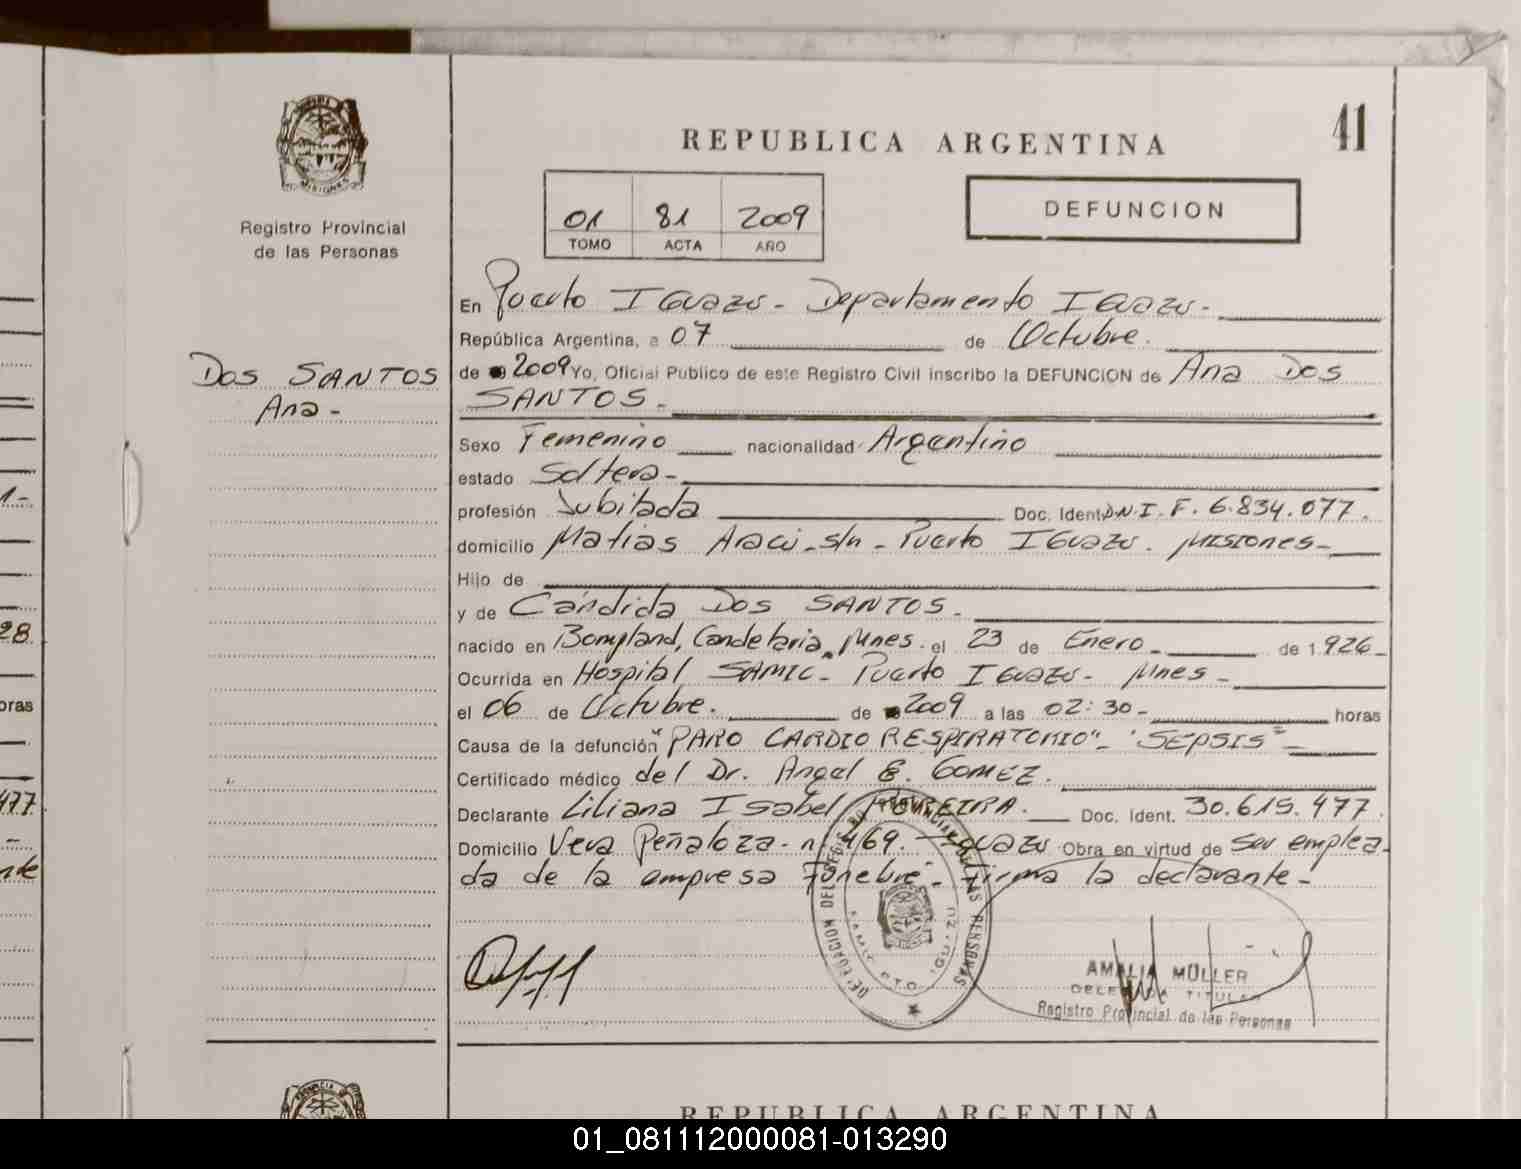 41
REPUBLICA ARGENTINA
DEFUNCION
01 81 2009
TOMO ACTA AÑO
MISIONES
Registro Provincial
de las Personas
DOS SANTOS
Ana -
En Puerto IGuazu - Departamento IGuazu -
República Argentina, a 07 de Octubre.
de 2009 Yo, Oficial Publico de este Registro Civil inscribo la DEFUNCION de Ana DOS
SANTOS -
Sexo Femenino nacionalidad Argentino
estado Soltera -
profesión Jubilada Doc. Ident. D.N.I. F. 6.834.077.
domicilio Matias Araci - s/n - Puerto IGuazu. Misiones -
Hijo de
y de Cándida DOS SANTOS -
nacido en Bompland, Candelaria, Mnes. el 23 de Enero - de 1.926 -
Ocurrida en Hospital SAMIC - Puerto IGuazu - Mnes -
el 06 de Octubre. de 2009 a las 02:30 - horas
Causa de la defunción "PARO CARDIO RESPIRATORIO" - "SEPSIS" -
Certificado médico del Dr. Angel E. GOMEZ.
Declarante Liliana Isabel Doc. Ident. 30.619.477.
Domicilio Vera Peñaloza - nº 469. Iguazu Obra en virtud de ser emplea-
da de la empresa Fúnebre. Firma la declarante -
DELEGACION DEL REGISTRO PROVINCIAL DE LAS PERSONAS
SAMIC PTO. IGUAZU
AMALIA MÜLLER
DELEGADA TITULAR
Registro Provincial de las Personas
1-
28.
oras
477.
nte
PROVINCIA DE
REPUBLICA ARGENTINA
01_081112000081-013290